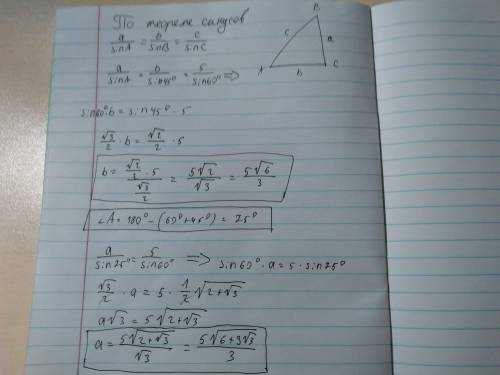 По теореме синусов
a/sinA = b/sinB = c/sinC
a/sinA = b/sin45° = 5/sin60° =>
sin60°·b = sin45°·5
√3/2 · b = √2/2 · 5
b = (√2/2 · 5)/(√3/2) = 5√2/√3 = 5√6/3
∠A = 180° - (60° + 45°) = 75°
a/sin75° = 5/sin60° => sin60° · a = 5 · sin75°
√3/2 · a = 5 · 1/2 √(2+√3)
a√3 = 5√(2+√3)
a = 5√(2+√3)/√3 = 5√(6+3√3)/3
B
c
a
A
b
C